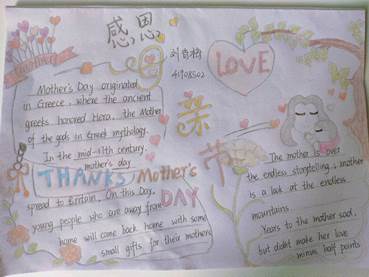 感恩
母亲节
LOVE
Mother's Day originated
in Greece, where the ancient
greeks honored Hero, the Mother
of the gods in Greek mythology.
In the mid-17th century,
mother's day
THANKS Mother's
DAY
spread to Britain, On this Day,
young people who are away from
home will come back home with some
small gifts for their mothers
The mother is over
the endless storytelling, mother
is a look at the endless
mountains
Years to the mother sad,
but didnt make her love
minus half points